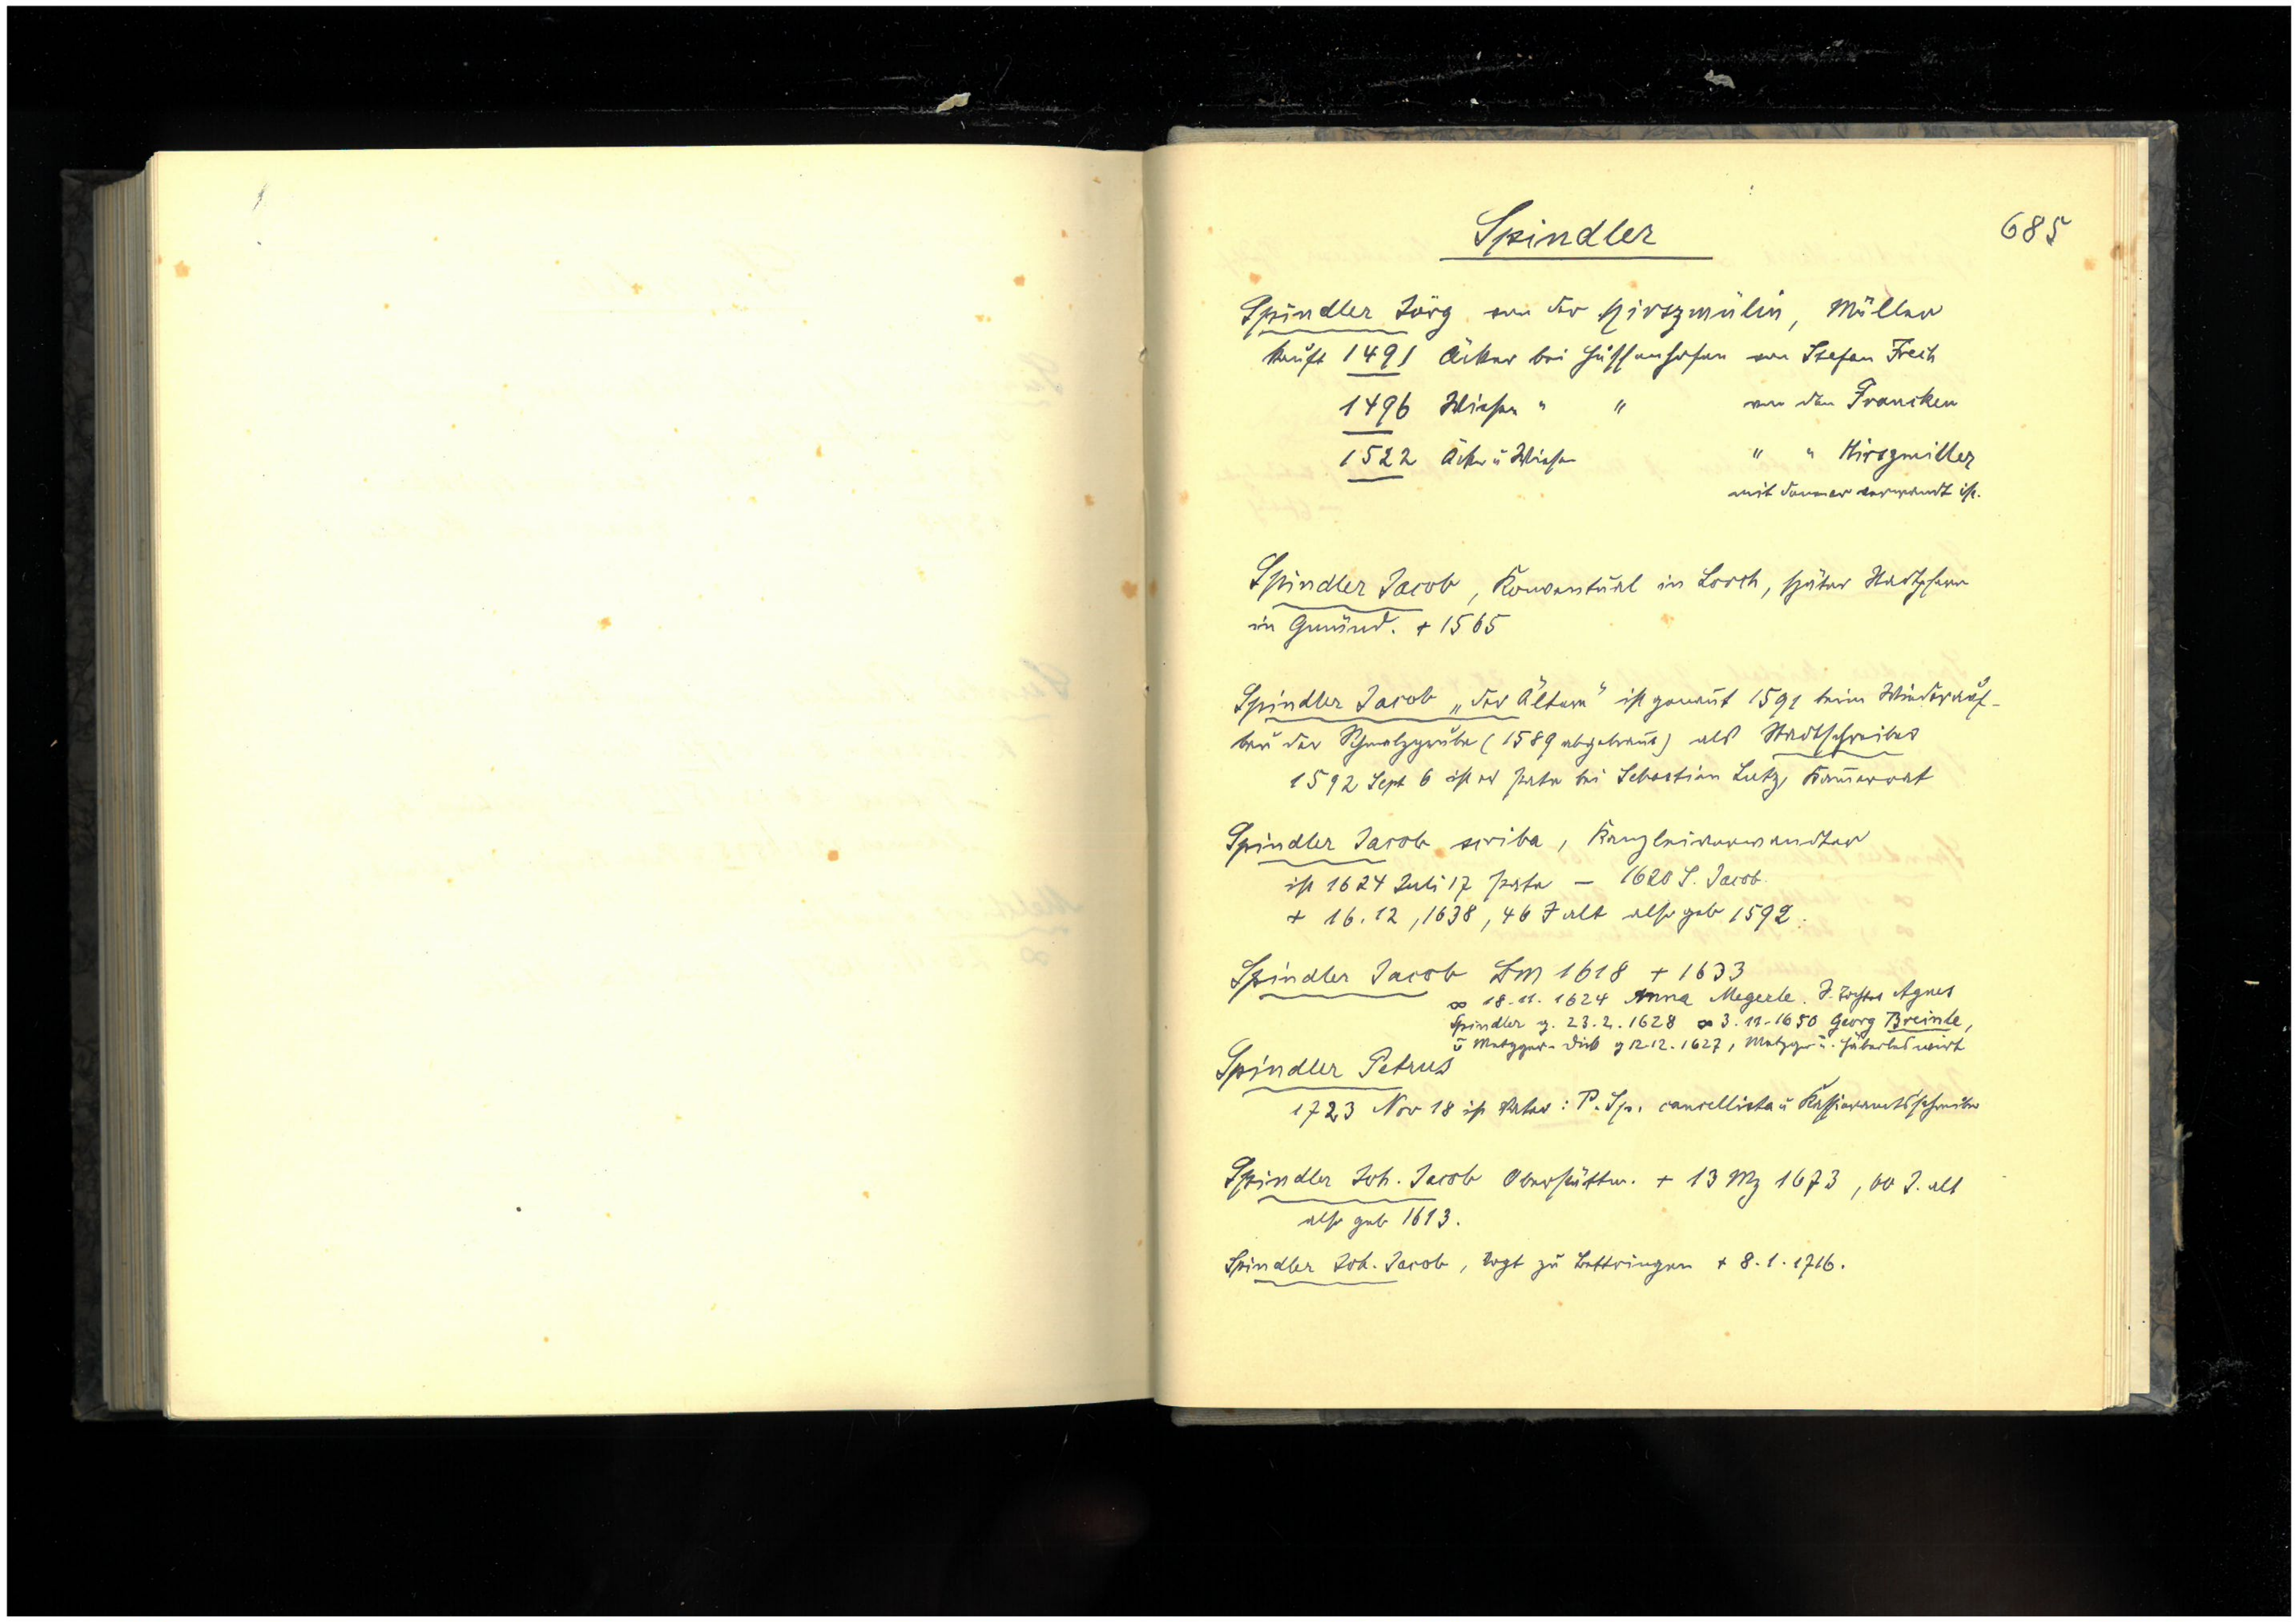 Spindler
685
Spindler Jörg von der Hirszmülin, Müller
kauft 1491 Äcker bei Hussenhofen von Stefan Frech
1496 Wiesen " " von den Francken
1522 Äcker u Wiesen " " Hirszmiller
mit denen er verwandt ist.
Spindler Jacob, Konventual in Lorch, später Stadtpfarr
in Gmünd. + 1565
Spindler Jacob „der Ältere" ist genannt 1591 beim Wiederauf-
bau der Schmalzgrube (1589 abgebrannt) als Stadtschreiber
1592 Sept 6 ist er Pate bei Sebastian Lutz,
Spindler Jacob scriba, Kanzleiverwandter
ist 1624 Juli 17 Pate – 1620 S. Jacob.
+ 16.12, 1638, 46 J alt also geb 1592.
Spindler Jacob Bm 1618 + 1633
∞ 18.11.1624 Anna Megerle. J. Tochter Agnes
Spindler g. 23.2.1628 ∞ 3.11.1650 Georg Breinle,
g 12.12.1627, Metzger u.
Spindler Petrus
1723 Nov 18 ist Pater: P. Sp. cancellista u Kassieramtsschreiber
Spindler Joh. Jacob + 13 Mz 1673, 60 J. alt
also geb 1613.
Spindler Joh. Jacob, Vogt zu Bettringen + 8.1.1716.